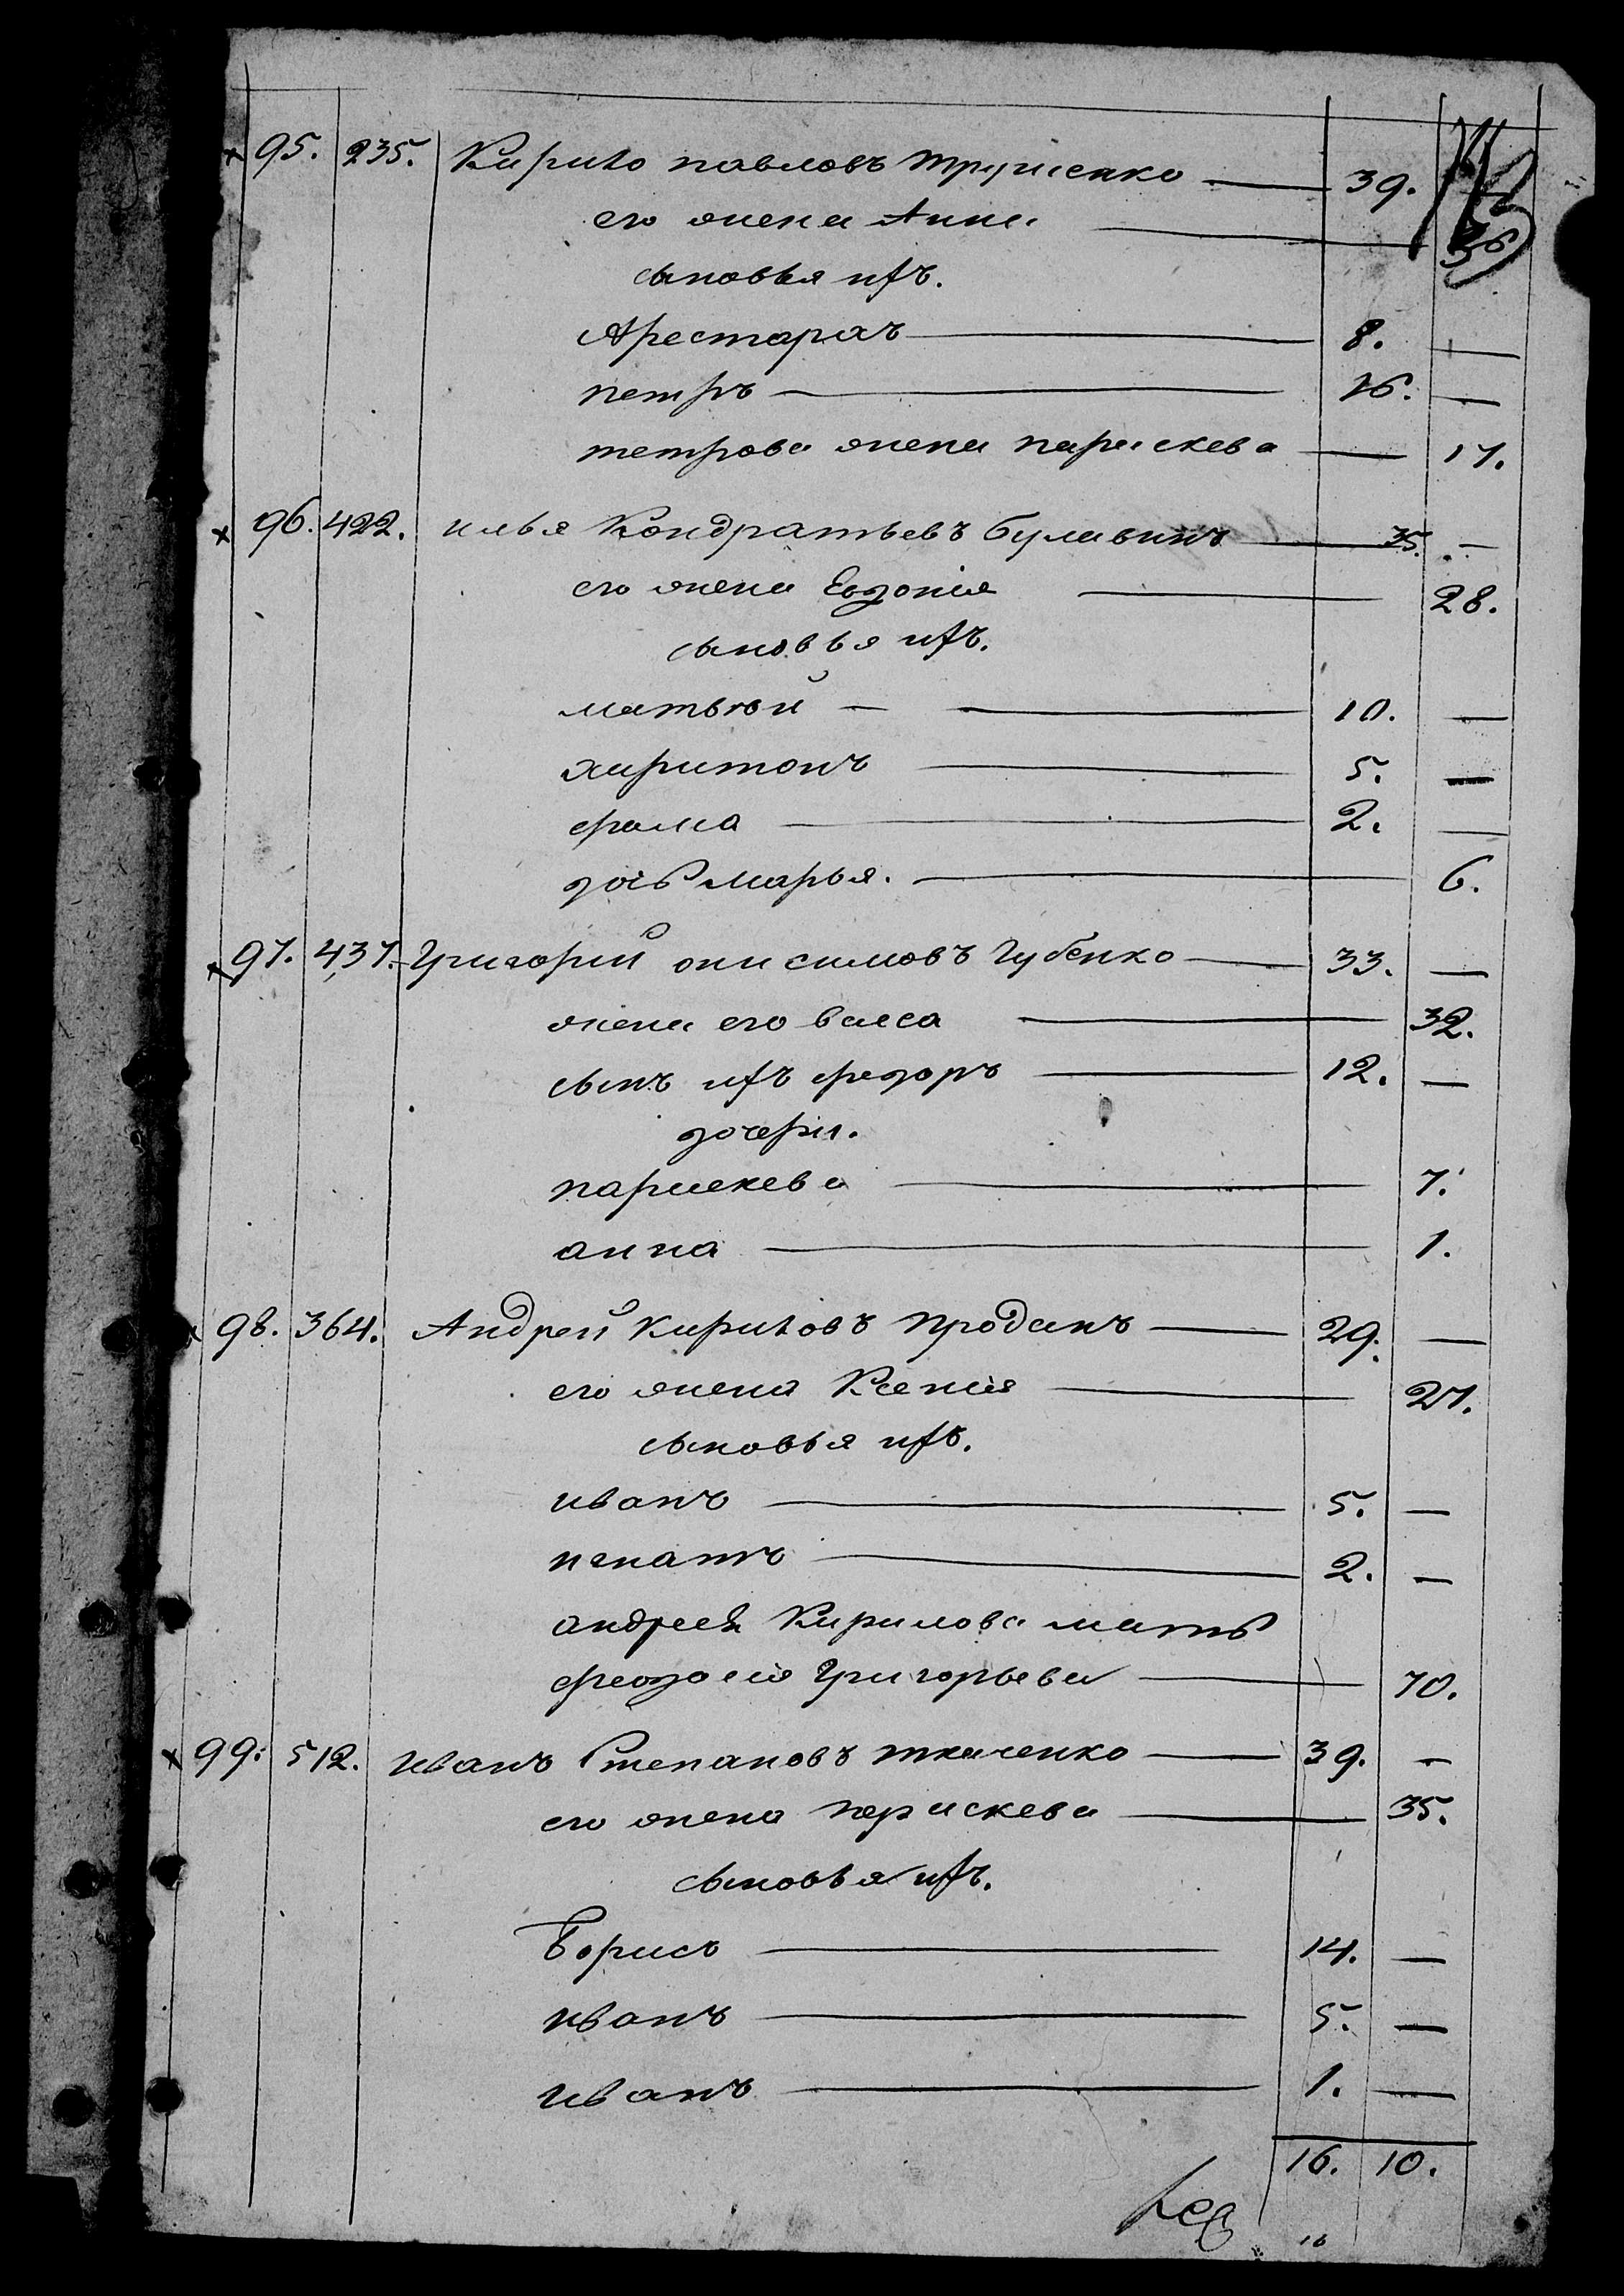 95. 235. Кирило павловъ 39.
его жена Анна 36
сыновья ихъ.
Арестархъ 8. —
петръ 16. —
петрова жена параскева 17.
96. 422. илья Кондратьевъ булавинъ 35. —
его жена Евдокія 28.
сыновья ихъ.
матвѣй — 10. —
харитонъ 5. —
фома 2. —
дочь марья. 6.
97. 437. Григорій онисимовъ Губенко 33. —
жена его васса 32.
сынъ ихъ федоръ 12. —
дочери.
параскева 7.
анна 1.
98. 364. Андрей Кириловъ проданъ 29. —
его жена Ксенія 27.
сыновья ихъ.
иванъ 5. —
игнатъ 2. —
андрея Кирилова мать
феодосія Григорьева 70.
99. 512. иванъ Степановъ ткаченко 39. —
его жена параскева 35.
сыновья ихъ.
Борисъ 14. —
иванъ 5. —
иванъ 1. —
16. 10.
16